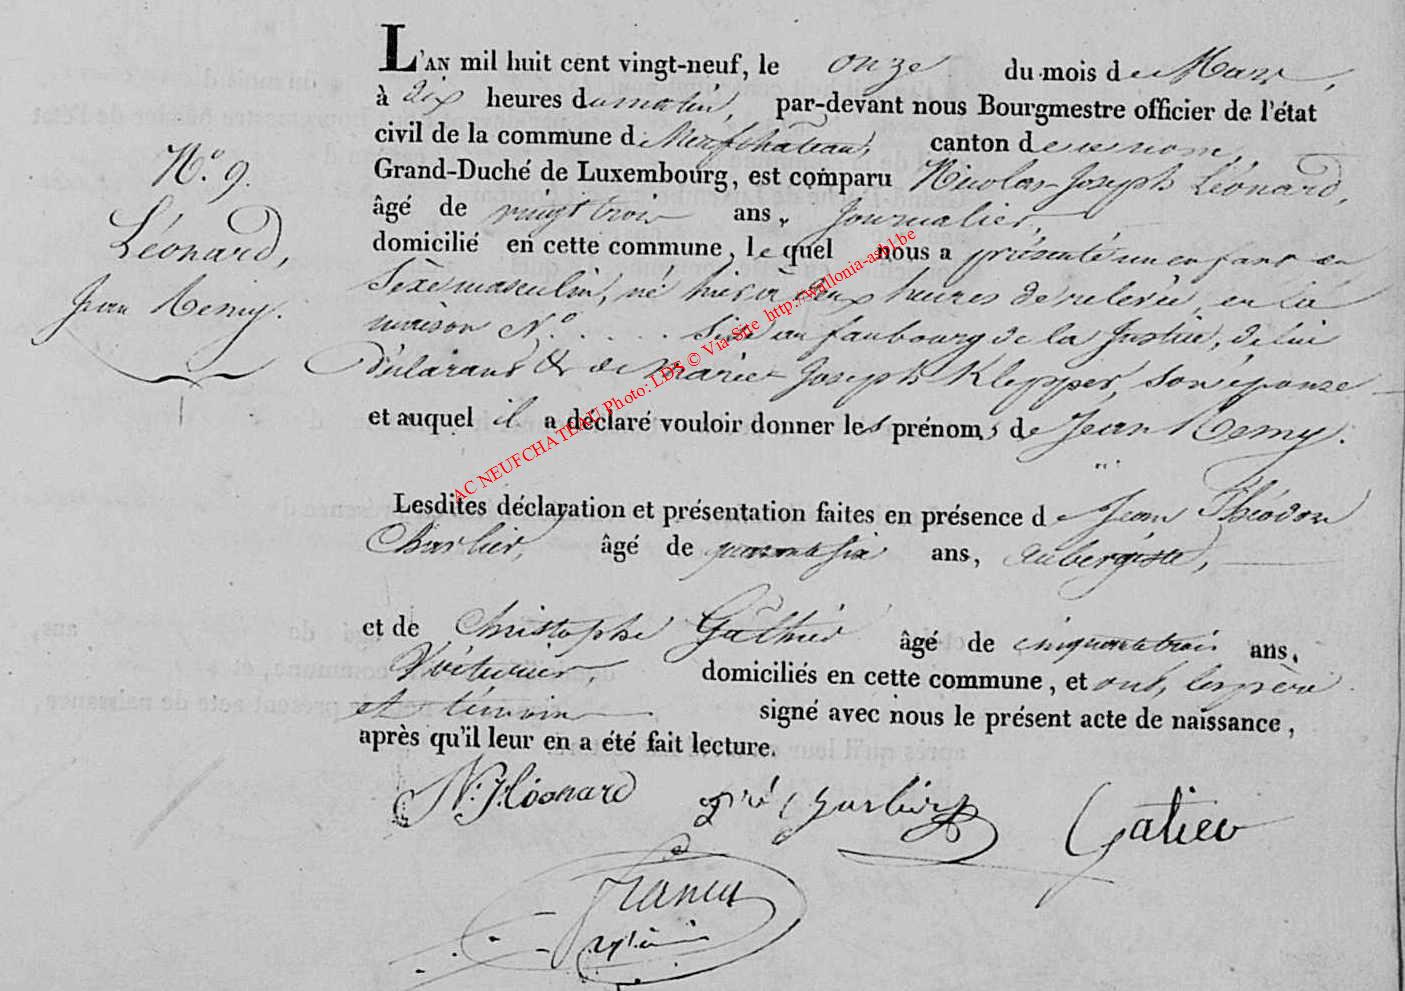 L'AN mil huit cent vingt-neuf, le onze du mois de Mars,
à dix heures du matin, par-devant nous Bourgmestre officier de l'état
civil de la commune de Neufchâteau, canton de ce nom,
Grand-Duché de Luxembourg, est comparu Nicolas Joseph Léonard,
âgé de vingt trois ans, journalier,
domicilié en cette commune, lequel nous a présenté un enfant du
Sexe masculin, né hier à deux heures de relevée, en la
maison N.° . . . . . Sise au faubourg de la Justice, de lui
déclarant & de Marie Joseph Klepper, son épouse
et auquel il a déclaré vouloir donner les prénoms de Jean Remy.
Lesdites déclaration et présentation faites en présence de Jean Théodore
Charlier, âgé de quarante six ans, aubergiste,
et de Christophe Gathier âgé de cinquante trois ans,
Voiturier, domiciliés en cette commune, et ont, les père
et témoins signé avec nous le présent acte de naissance,
après qu'il leur en a été fait lecture.
N.° 9.
Léonard,
Jean Remy.
N: J: Léonard
Charlier
Gatier
AC NEUFCHATEAU Photo: LDS © Via Site http://wallonia-asbl.be